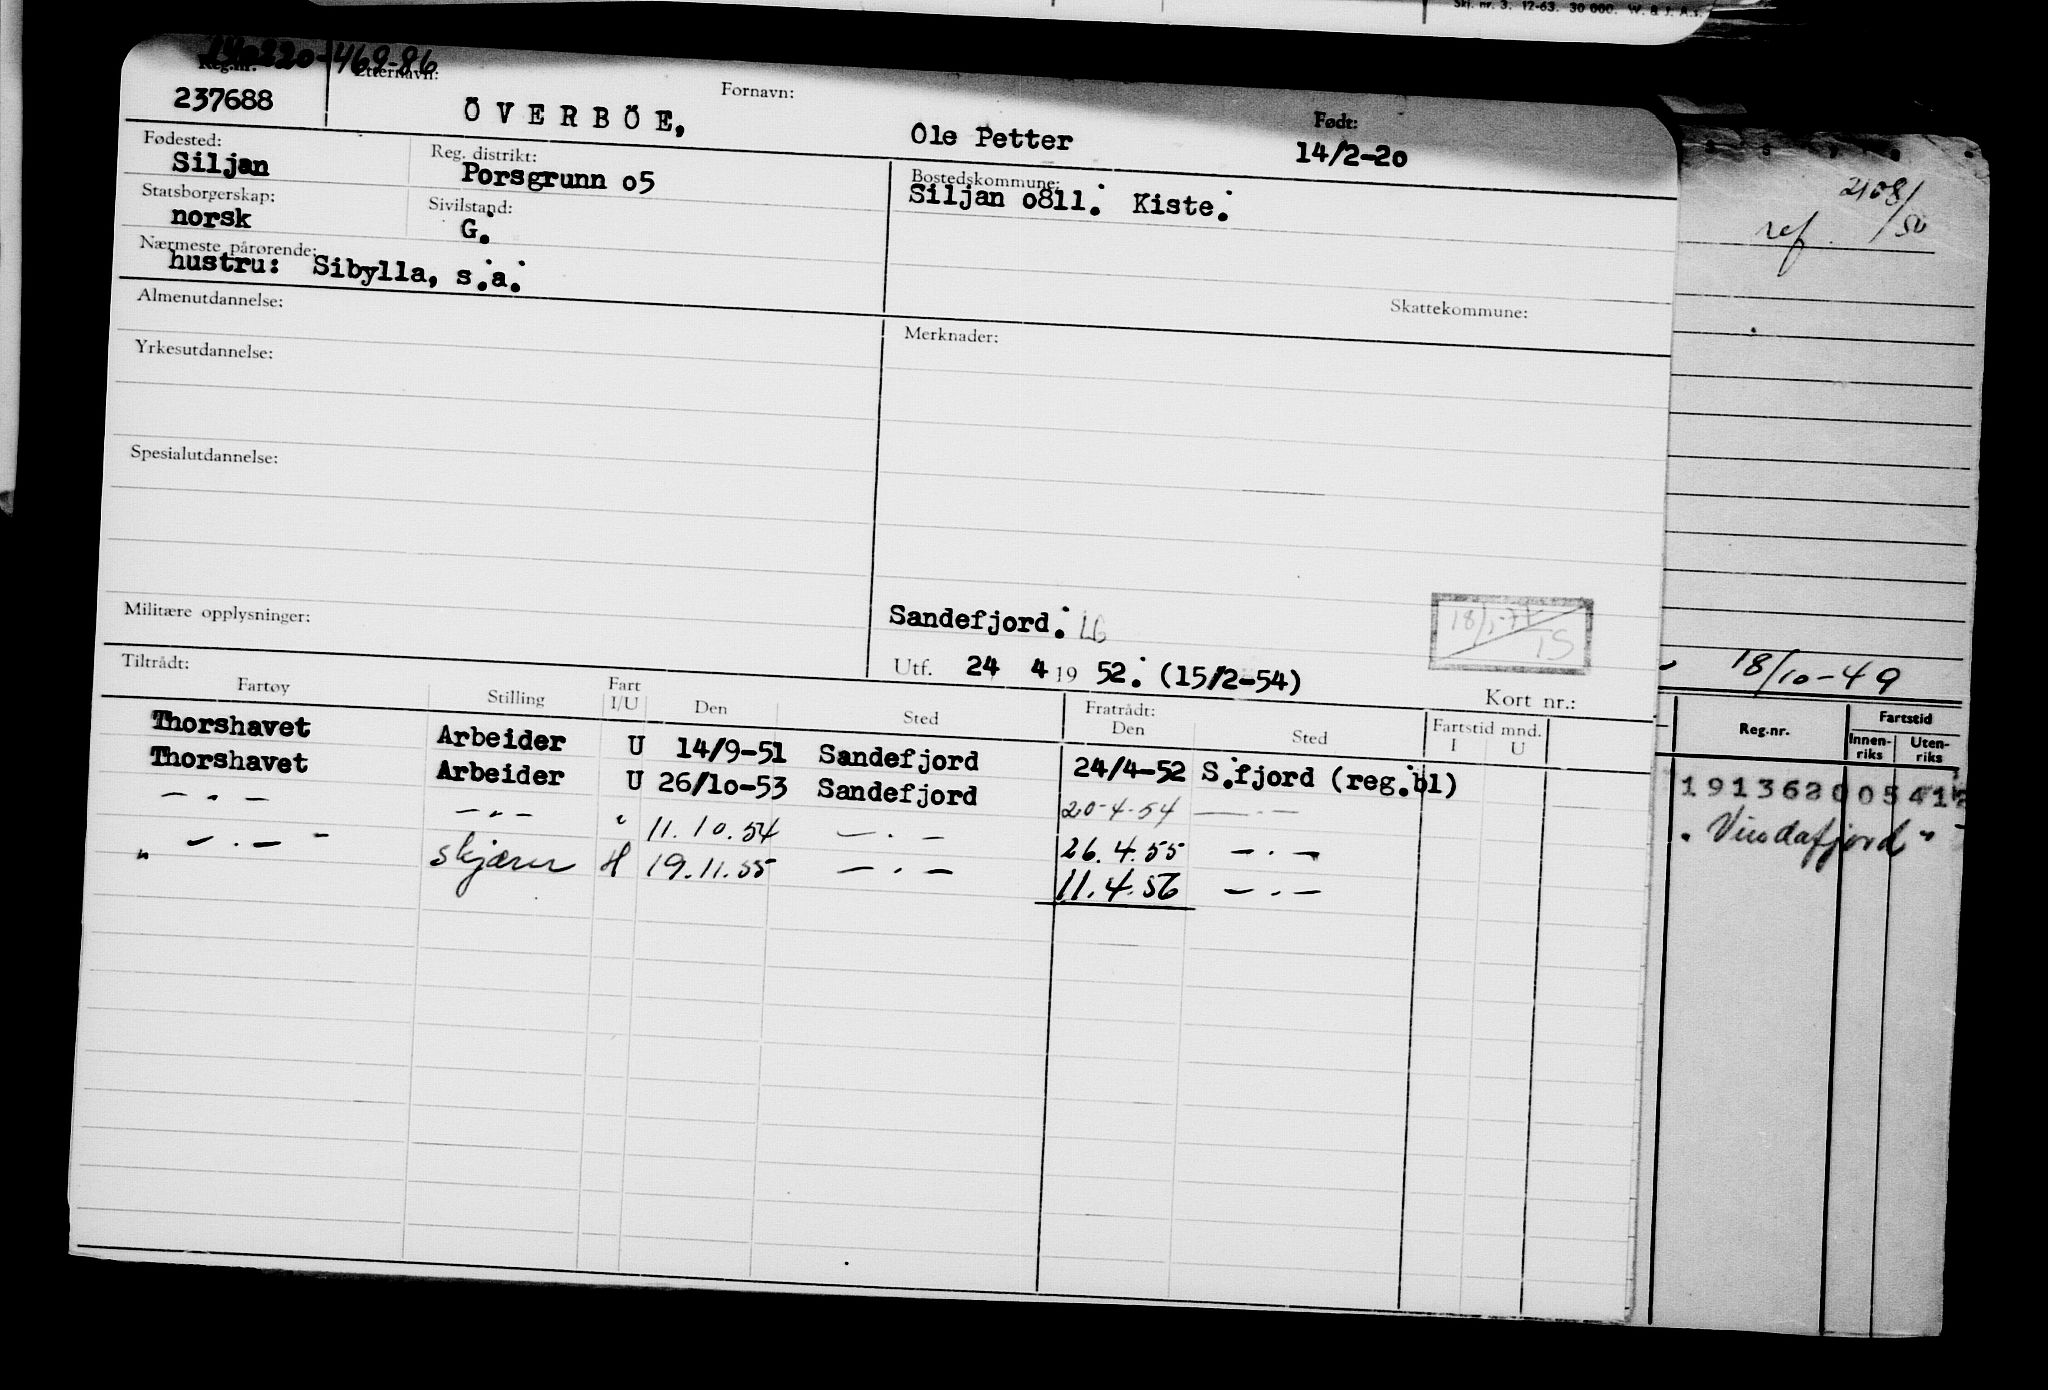 Skj. nr. 3. 12-63. 30 000. W. & J. A.s.
140220-469-86
Reg.nr. Etternavn: Fornavn: Født:
237688 ÖVERBÖE, Ole Petter 14/2-20
Fødested: Reg. distrikt: Bostedskommune:
Siljan Porsgrunn o5 Siljan o811. Kiste.
Statsborgerskap: Sivilstand:
norsk G.
Nærmeste pårørende:
hustru: Sibylla, s.a.
Skattekommune:
Almenutdannelse: Merknader:
Yrkesutdannelse:
Spesialutdannelse:
Militære opplysninger:
Sandefjord. LG
Utf. 24 4 19 52. (15/2-54)
Kort nr.:
Tiltrådt: Fratrådt:
Fartøy Stilling Fart I/U Den Sted Den Sted Fartstid mnd. I U
Thorshavet Arbeider U 14/9-51 Sandefjord 24/4-52 S.fjord (reg.bl)
Thorshavet Arbeider U 26/10-53 Sandefjord 20-4-54 — . —
— „ — — „ — " 11.10.54 — . — 26.4.55 — . —
„ — . — - skjærer H 19.11.55 — . — 11.4.56 — . —
2108/50
ref.
18/10-49
Reg.nr. Fartstid
Innenriks Utenriks
1913620 05 412
"Vindafjord"